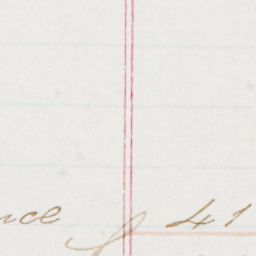 nce 41